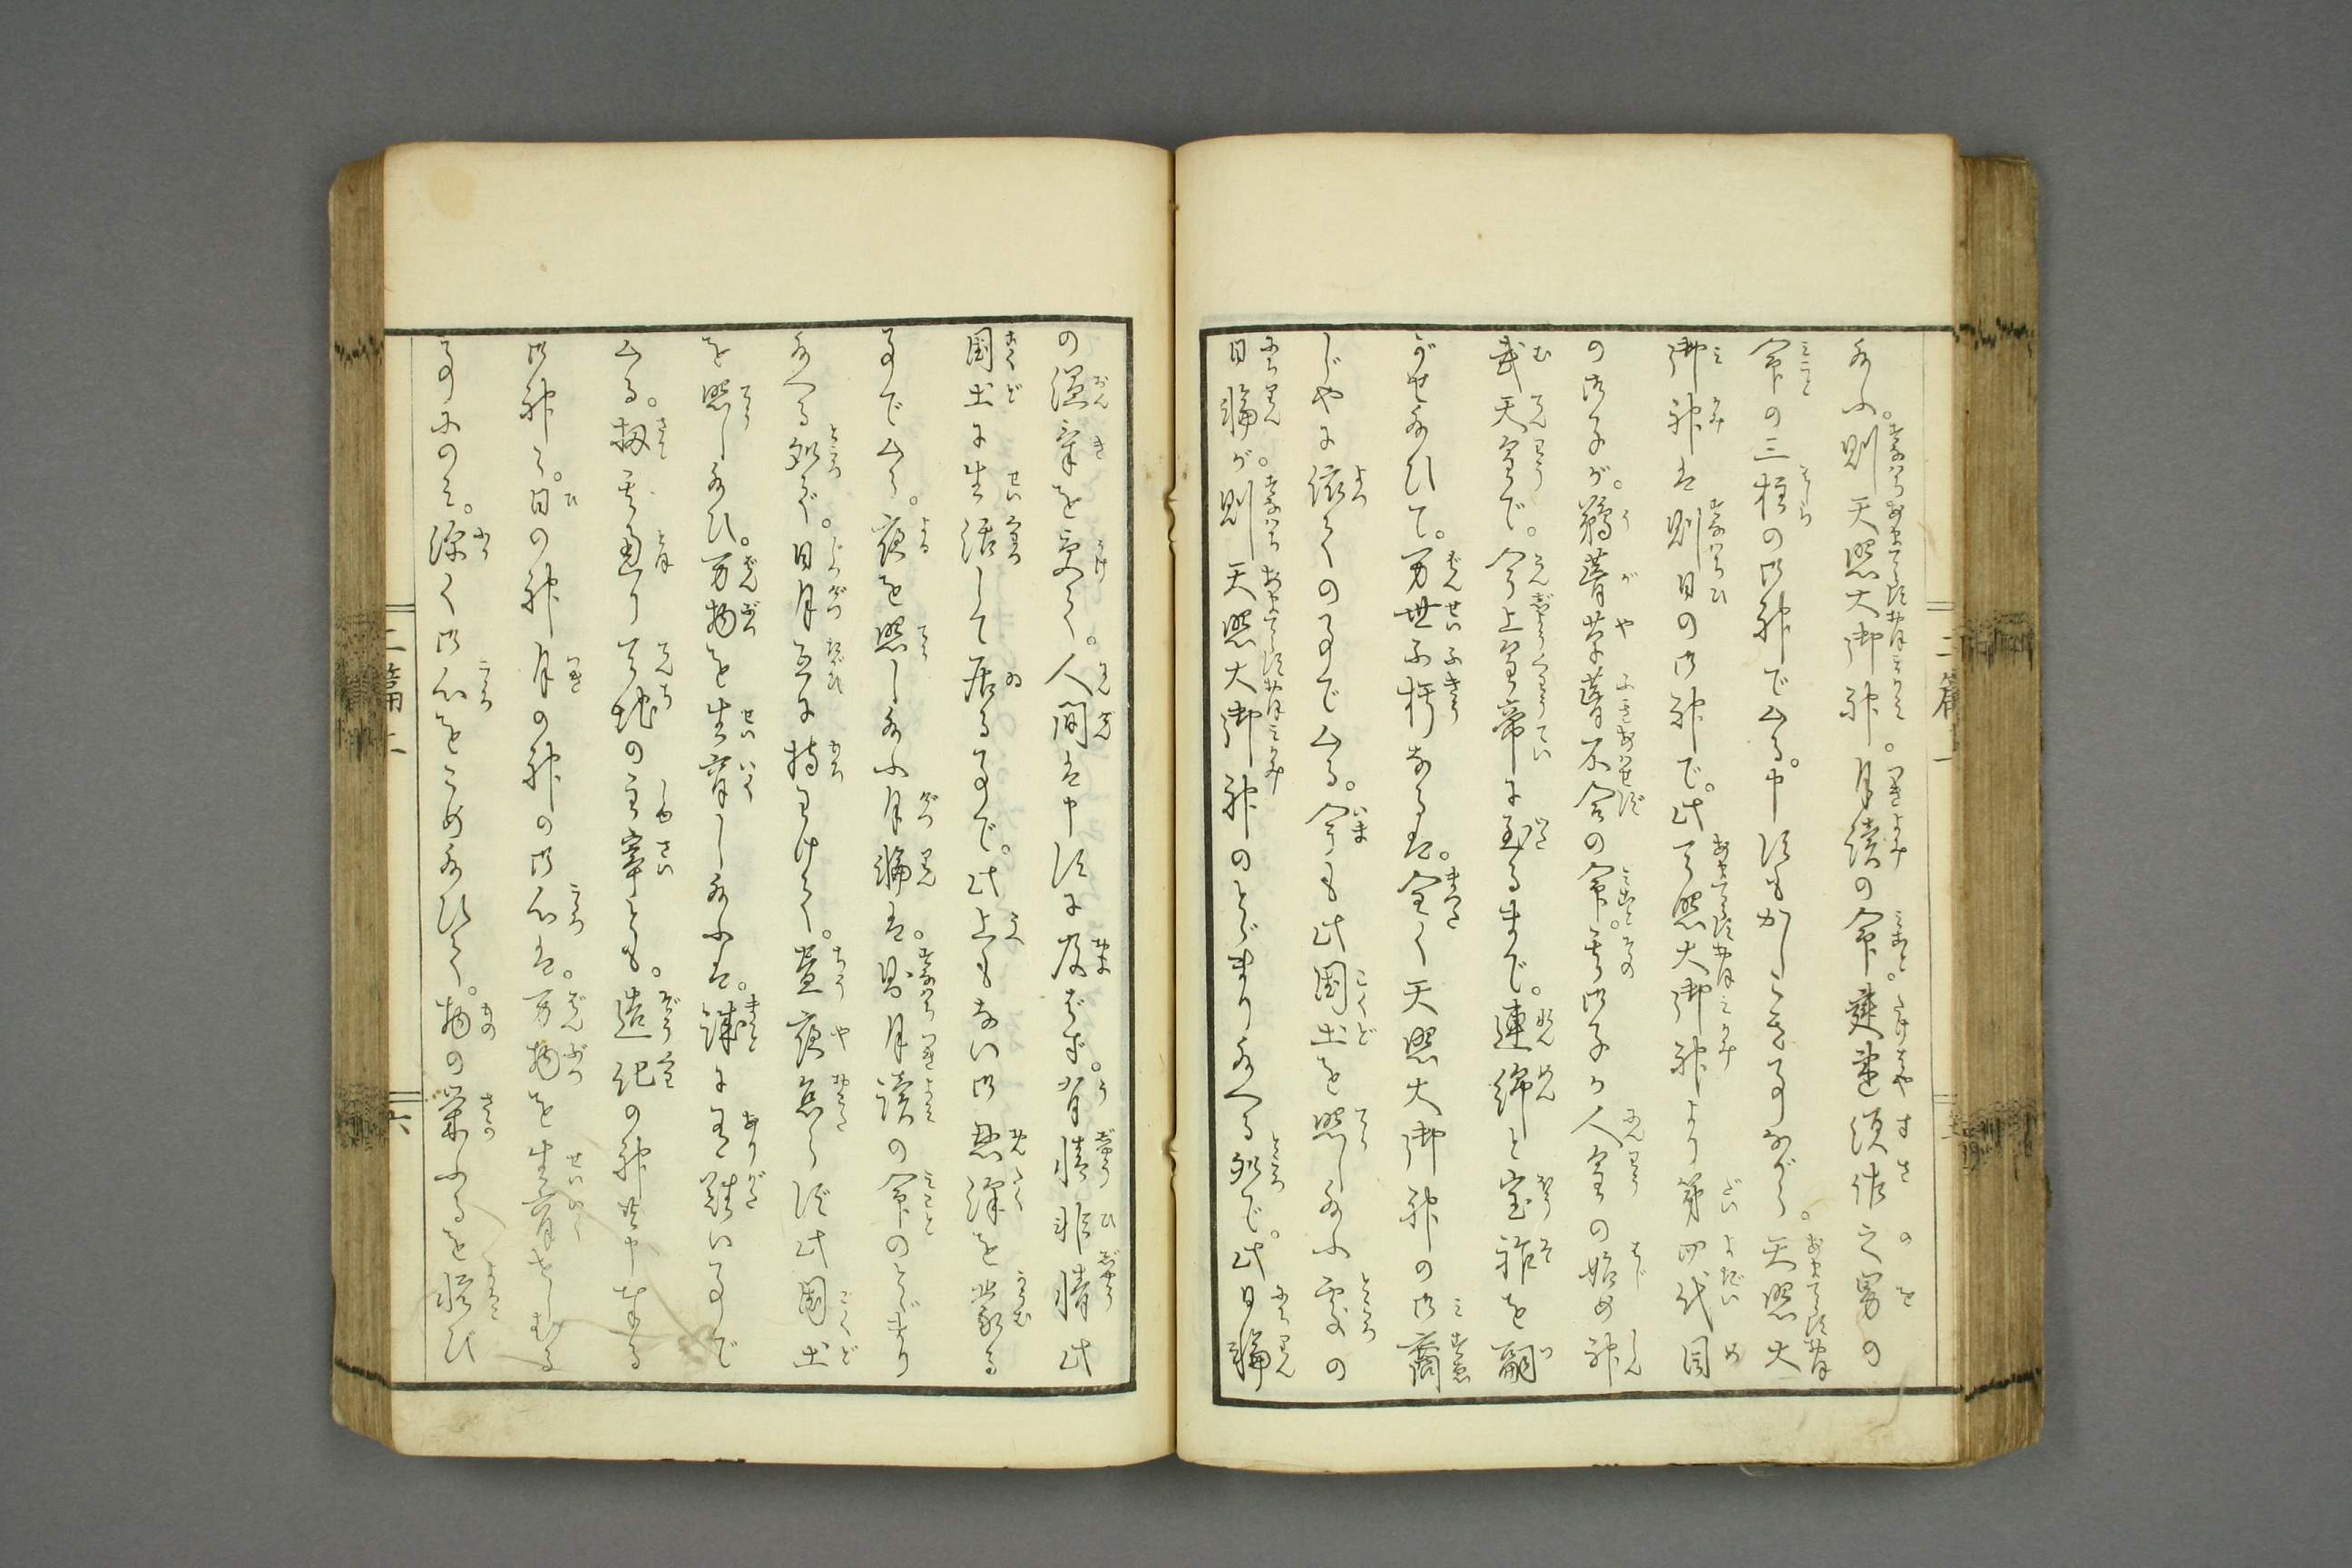 給ふ。則天照大御神。月讀の命。建速須佐之男の
命の三柱の御神で厶る。申すもかしこき事ながら。天照大
御神は則日の御神で。此天照大御神より第四代目
の御子が。鵜葺草葺不合の命。其御子が人皇の始め神
武天皇で。今上皇帝に至るまで。連綿と宝祚を嗣
がせ給ひて。万世不朽なるは。全く天照大御神の御裔
じやに依ての事で厶る。今も此国土を照し給ふ処の
日輪が。則天照大御神のとゞまり給へる処で。此日輪
の温気を受て。人間は申すに及ばず。有情非情此
国土に生活して居る事で。此上もない御恩澤を蒙る
事で厶る。夜を照し給ふ月輪は。則月讀の命のとゞまり
給へる処で。日月互に持わけて。昼夜怠らず此国土
を照し給ひ。万物を生育し給ふは。誠に有難い事で
厶る。扨其通り天地の主宰とも。造化の神共申奉る
御神ゆゑ。日の神月の神の御心は。万物を生育せしむる
事にのみ。深く御心をこめ給ひて。物の栄ふるを悦び
二篇上
二篇上
六